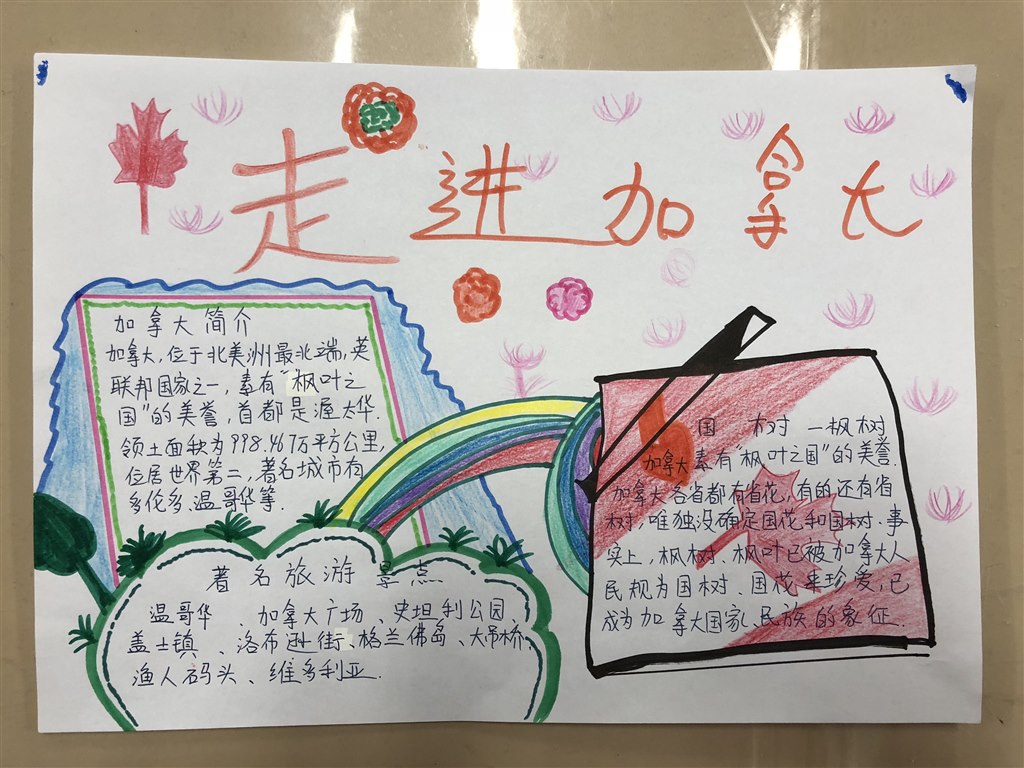 走进加拿大
加拿大简介
加拿大,位于北美洲最北端,英
联邦国家之一,素有“枫叶之
国”的美誉,首都是渥太华.
领土面积为998.467万平方公里,
位居世界第二,著名城市有
多伦多.温哥华等.
著名旅游景点
温哥华、加拿大广场、史坦利公园
盖士镇、洛布逊街、格兰佛岛、大吊桥.
渔人码头、维多利亚.
国树—枫树
加拿大素有“枫叶之国”的美誉.
加拿大各省都有省花,有的还有省
树,唯独没确定国花和国树.事
实上,枫树、枫叶已被加拿大人
民视为国树、国花来珍爱,已
成为加拿大国家、民族的象征.